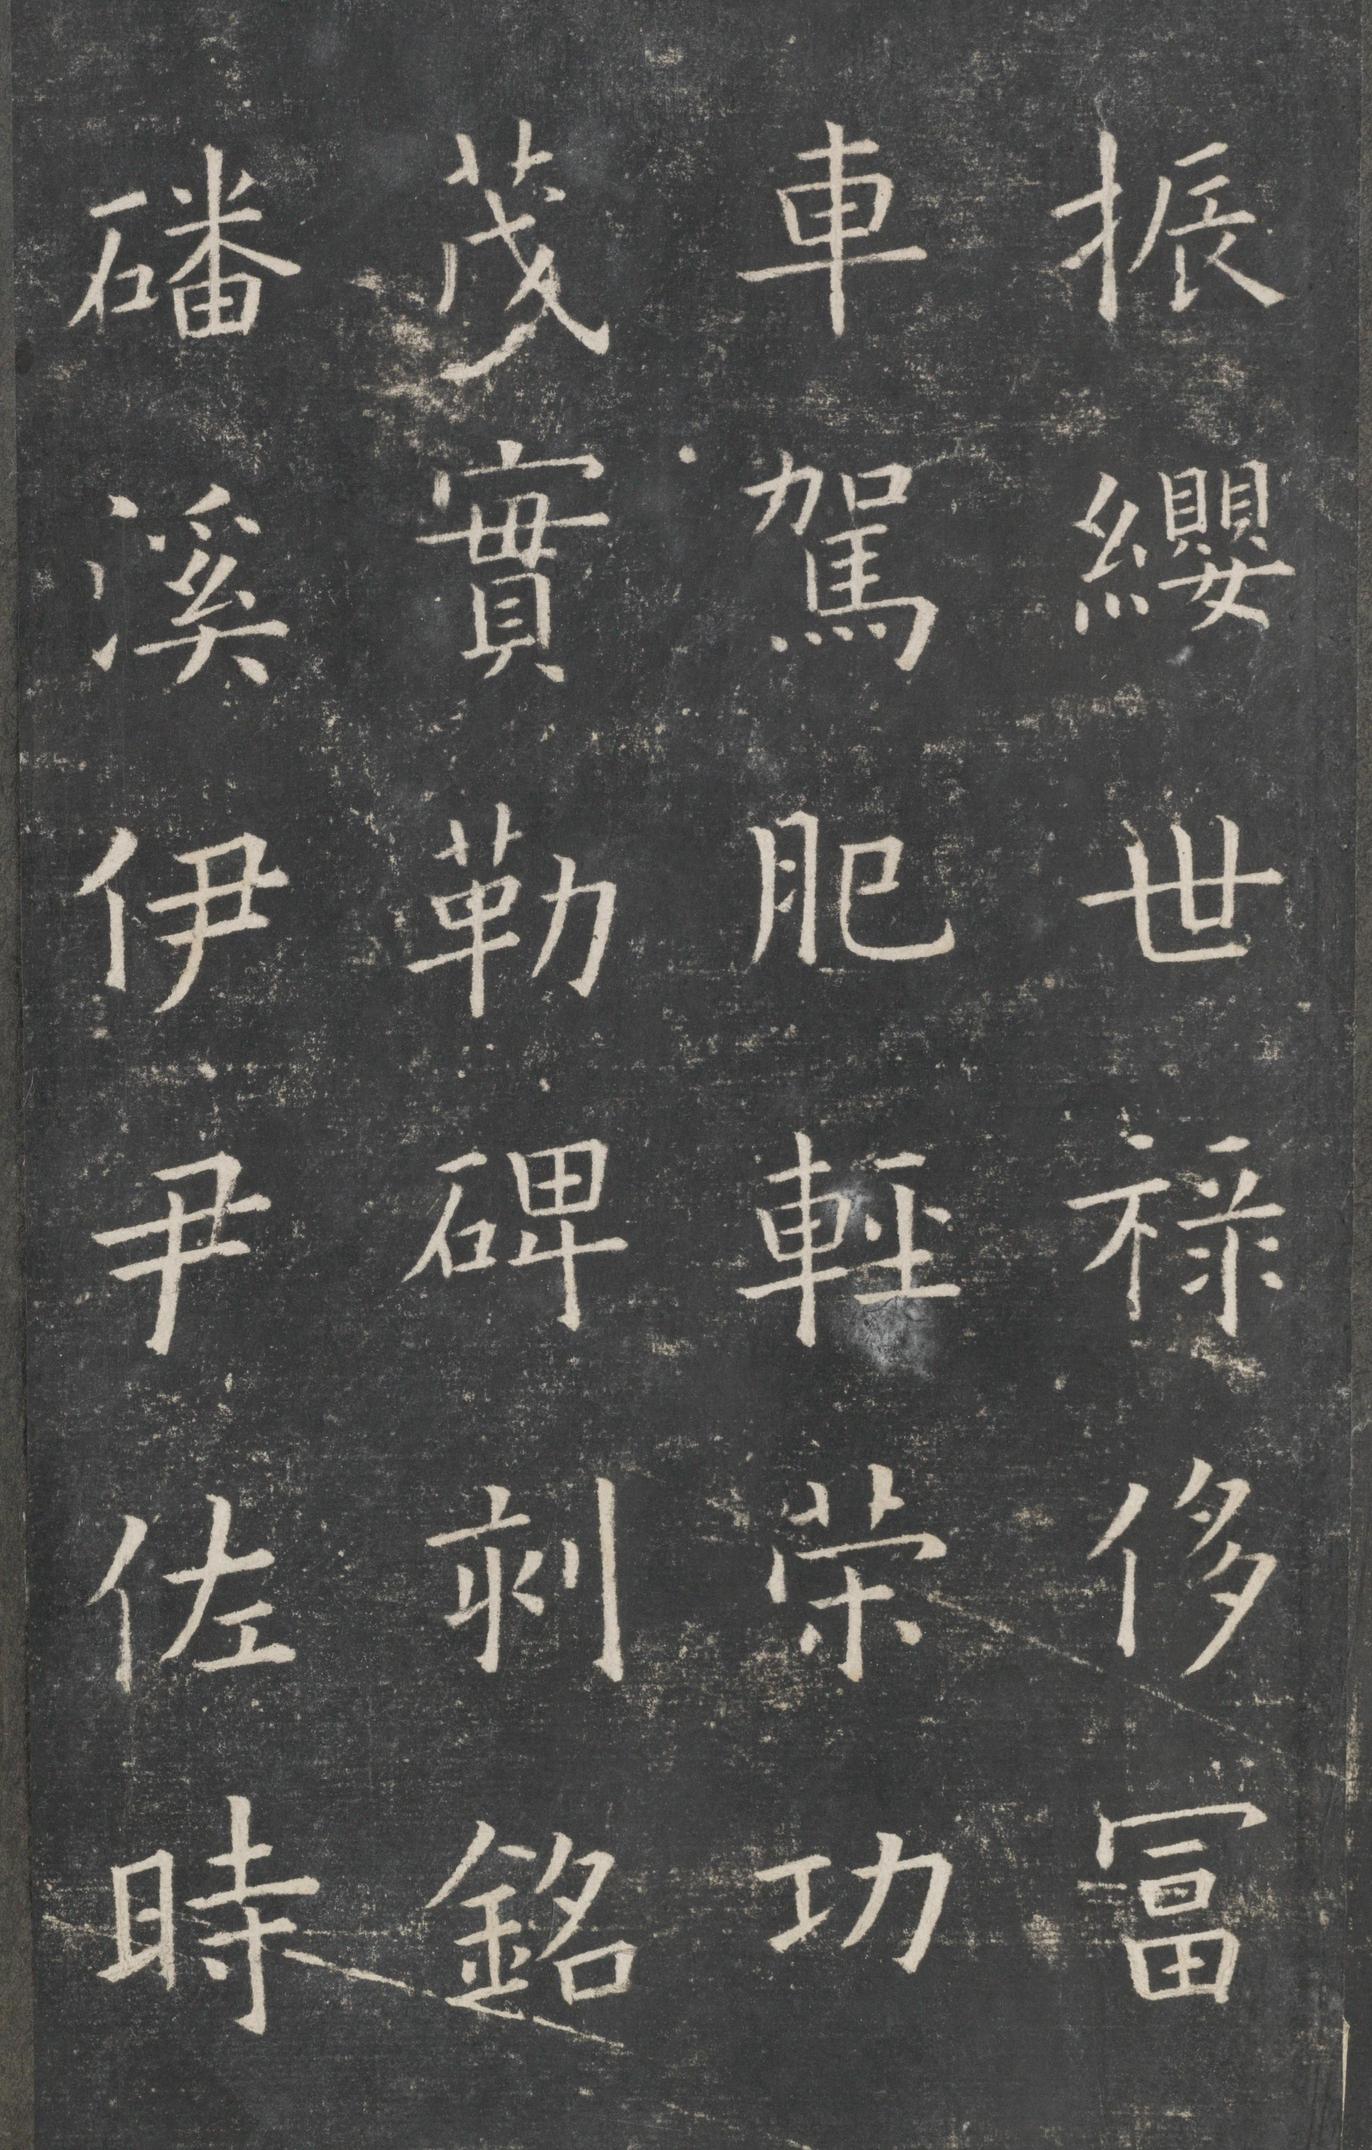 振纓世禄侈冨
車駕肥輕榮功
茂實勒碑刻銘
磻溪伊尹佐時